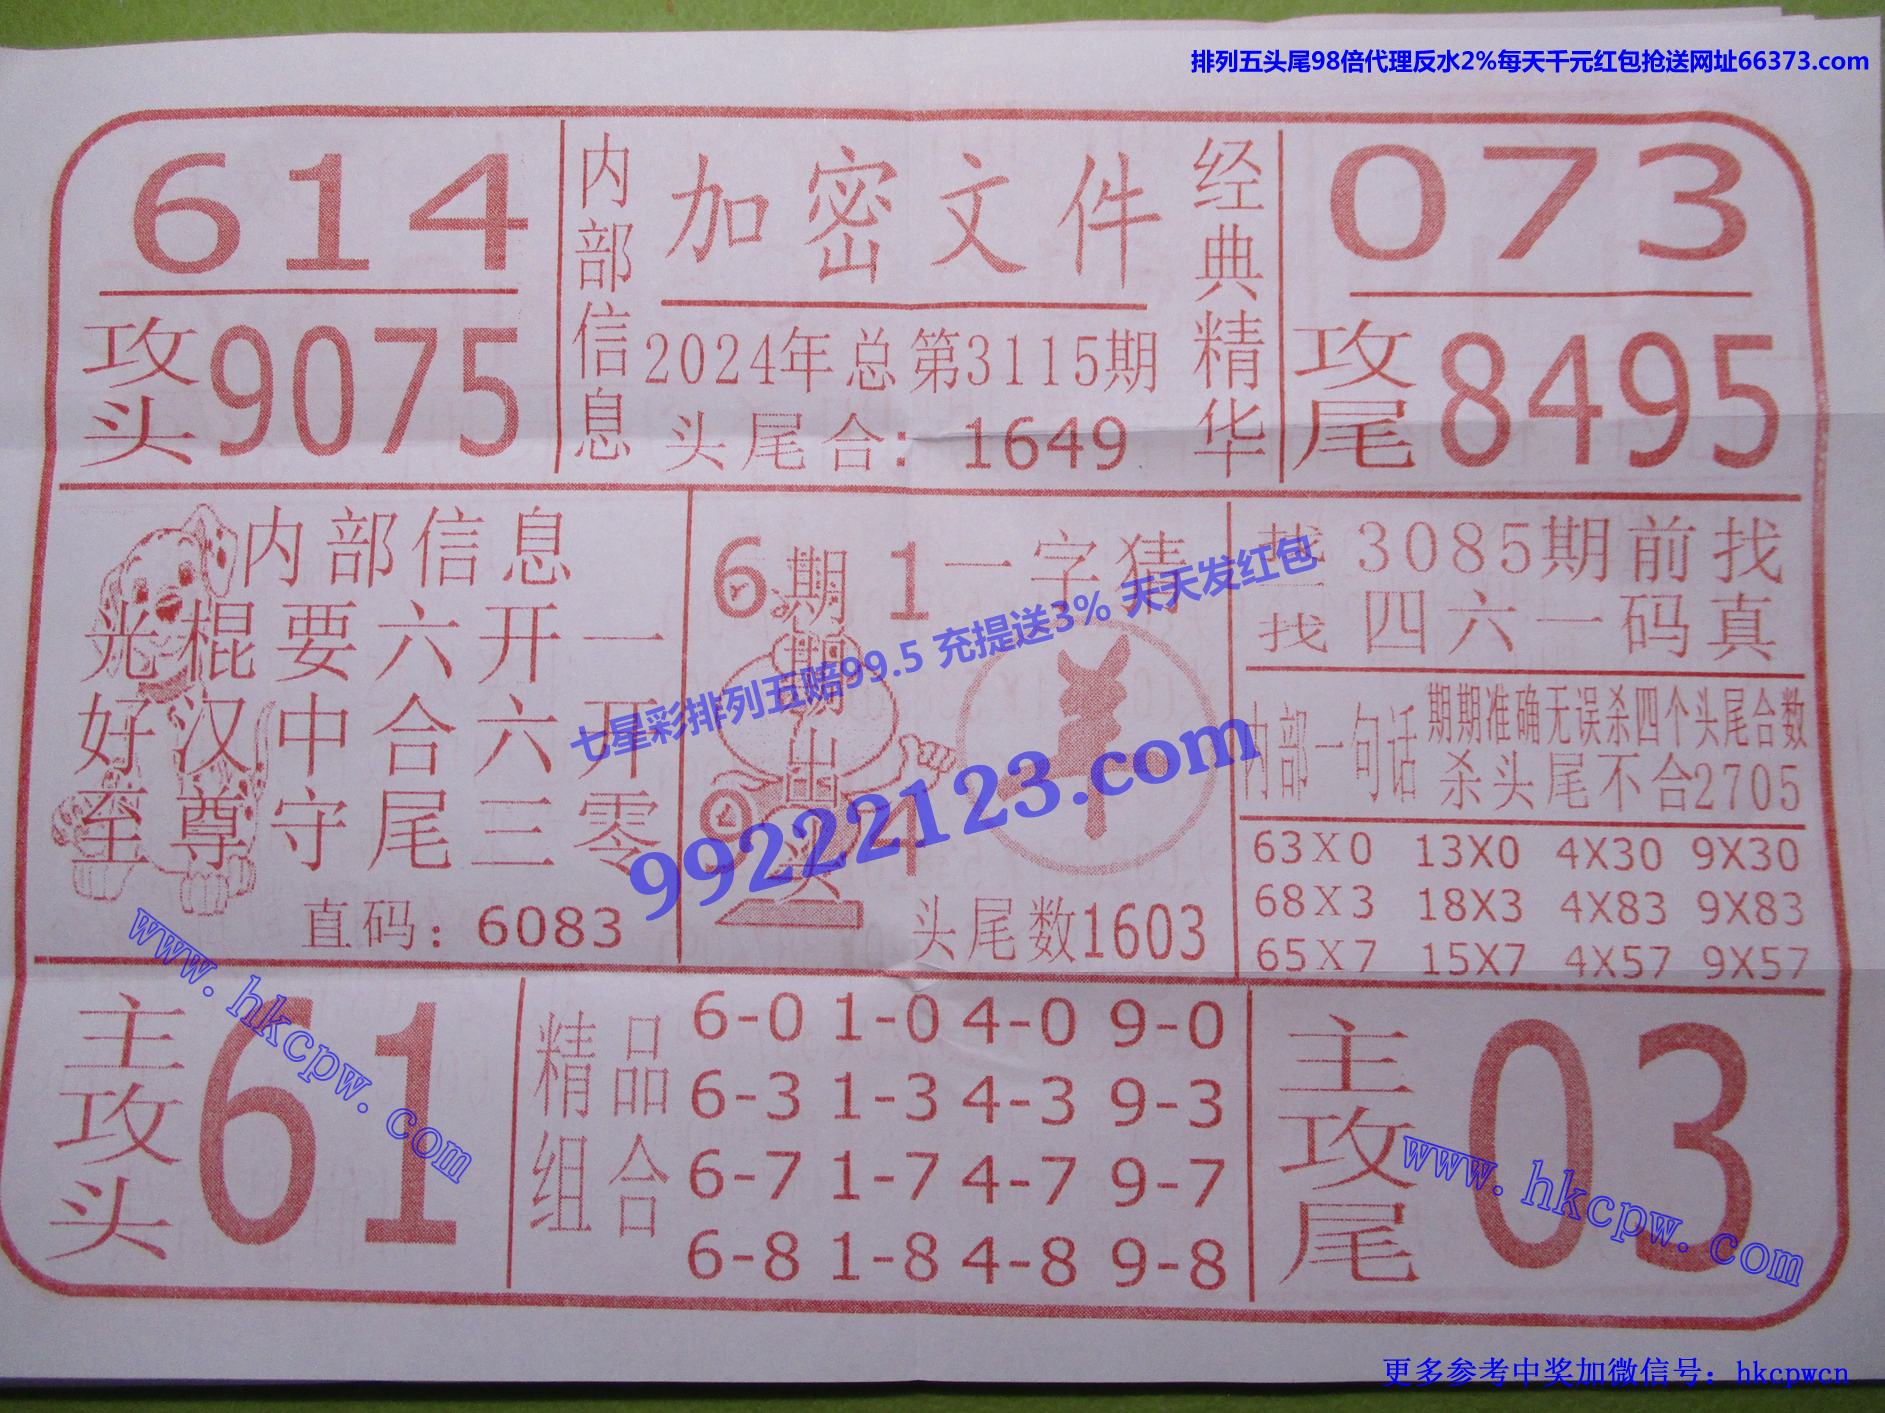 排列五头尾98倍代理反水2%每天千元红包抢送网址66373.com
614
攻头9075
内部信息
加密文件
2024年总第3115期
头尾合：1649
经典精华
073
攻尾8495
内部信息
光棍要六开一
好汉中合六开
至尊守尾三零
直码：6083
6 1
9 4
期期出头
一字猜
羊
头尾数1603
找一找
3085期前找
四六一码真
内部一句话
期期准确无误杀四个头尾合数
杀头尾不合2705
63X0 13X0 4X30 9X30
68X3 18X3 4X83 9X83
65X7 15X7 4X57 9X57
七星彩排列五赔99.5 充提送3% 天天发红包
99222123.com
主攻头
61
www.hkcpw.com
精品组合
6-0 1-0 4-0 9-0
6-3 1-3 4-3 9-3
6-7 1-7 4-7 9-7
6-8 1-8 4-8 9-8
主攻尾
03
www.hkcpw.com
更多参考中奖加微信号：hkcpwcn